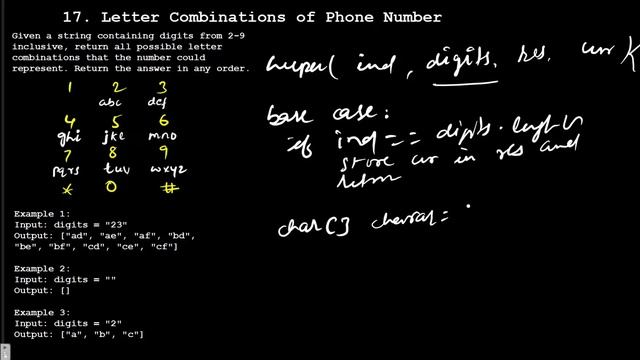 17. Letter Combinations of Phone Number
Given a string containing digits from 2-9
inclusive, return all possible letter
combinations that the number could
represent. Return the answer in any order.
1 2 3
abc def
4 5 6
ghi jkl mno
7 8 9
pqrs tuv wxyz
* 0 #
Example 1:
Input: digits = "23"
Output: ["ad", "ae", "af", "bd",
"be", "bf", "cd", "ce", "cf"]
Example 2:
Input: digits = ""
Output: []
Example 3:
Input: digits = "2"
Output: ["a", "b", "c"]
helper( ind, digits, res, curr
base case:
if ind == digits.length
store curr in res and
return
char[] =